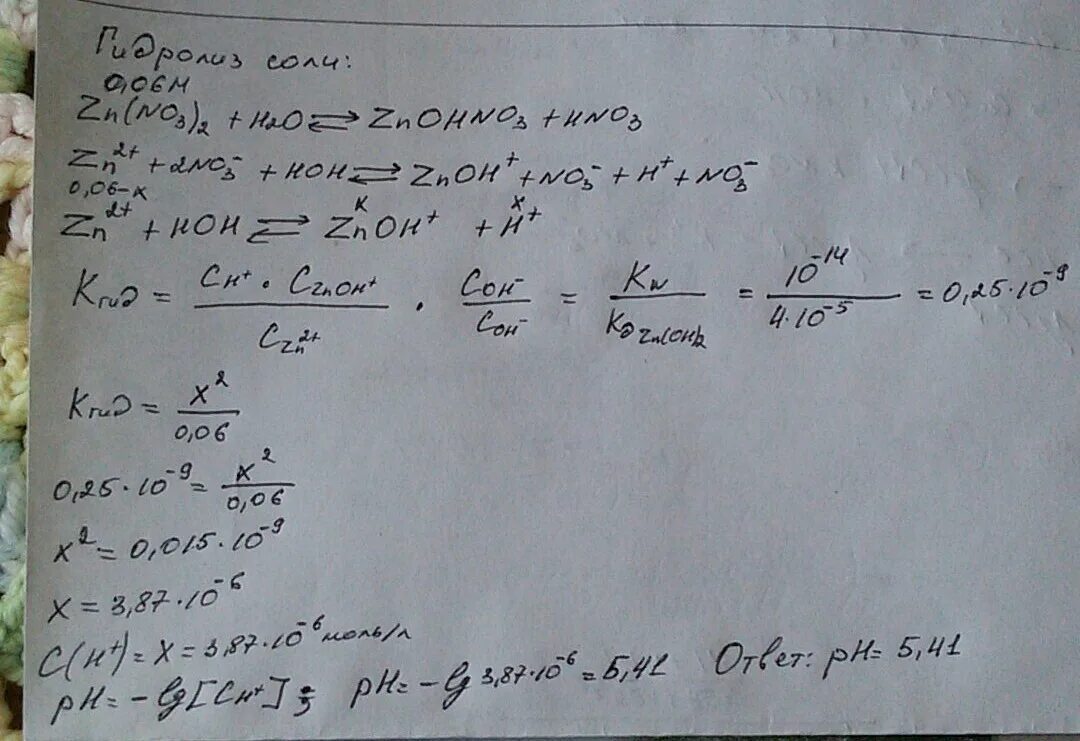 Гидролиз соли:
0,06М
Zn(NO₃)₂ + H₂O ⇄ ZnOHNO₃ + HNO₃
Zn²⁺ + 2NO₃⁻ + HOH ⇄ ZnOH⁺ + NO₃⁻ + H⁺ + NO₃⁻
0,06-x x x
Zn²⁺ + HOH ⇄ ZnOH⁺ + H⁺
Kгид = CH⁺ · CZnOH⁺ / CZn²⁺ · COH⁻ / COH⁻ = Kw / Kд Zn(OH)₂ = 10⁻¹⁴ / 4·10⁻⁵ = 0,25·10⁻⁹
Kгид = x² / 0,06
0,25·10⁻⁹ = x² / 0,06
x² = 0,015·10⁻⁹
x = 3,87·10⁻⁶
C(H⁺) = x = 3,87·10⁻⁶ моль/л
pH = -lg[CH⁺]; pH = -lg 3,87·10⁻⁶ = 5,41 Ответ: pH = 5,41